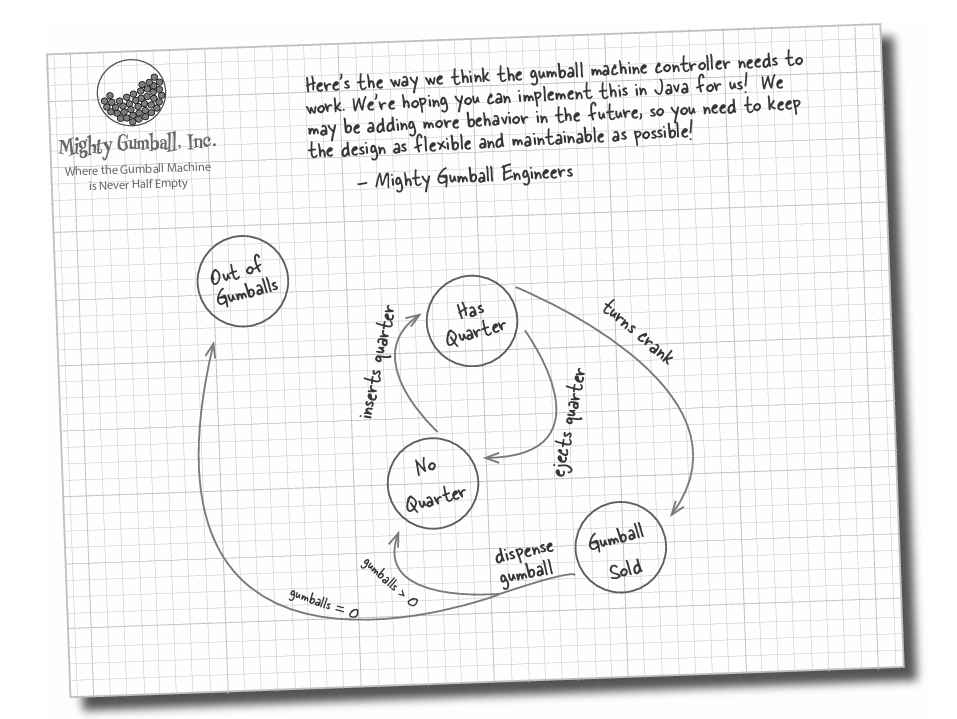 Here's the way we think the gumball machine controller needs to
work. We're hoping you can implement this in Java for us! We
may be adding more behavior in the future, so you need to keep
the design as flexible and maintainable as possible!
– Mighty Gumball Engineers
Mighty Gumball, Inc.
Where the Gumball Machine
is Never Half Empty
Out of
Gumballs
Has
Quarter
turns crank
inserts quarter
ejects quarter
No
Quarter
Gumball
Sold
dispense
gumball
gumballs > 0
gumballs = 0